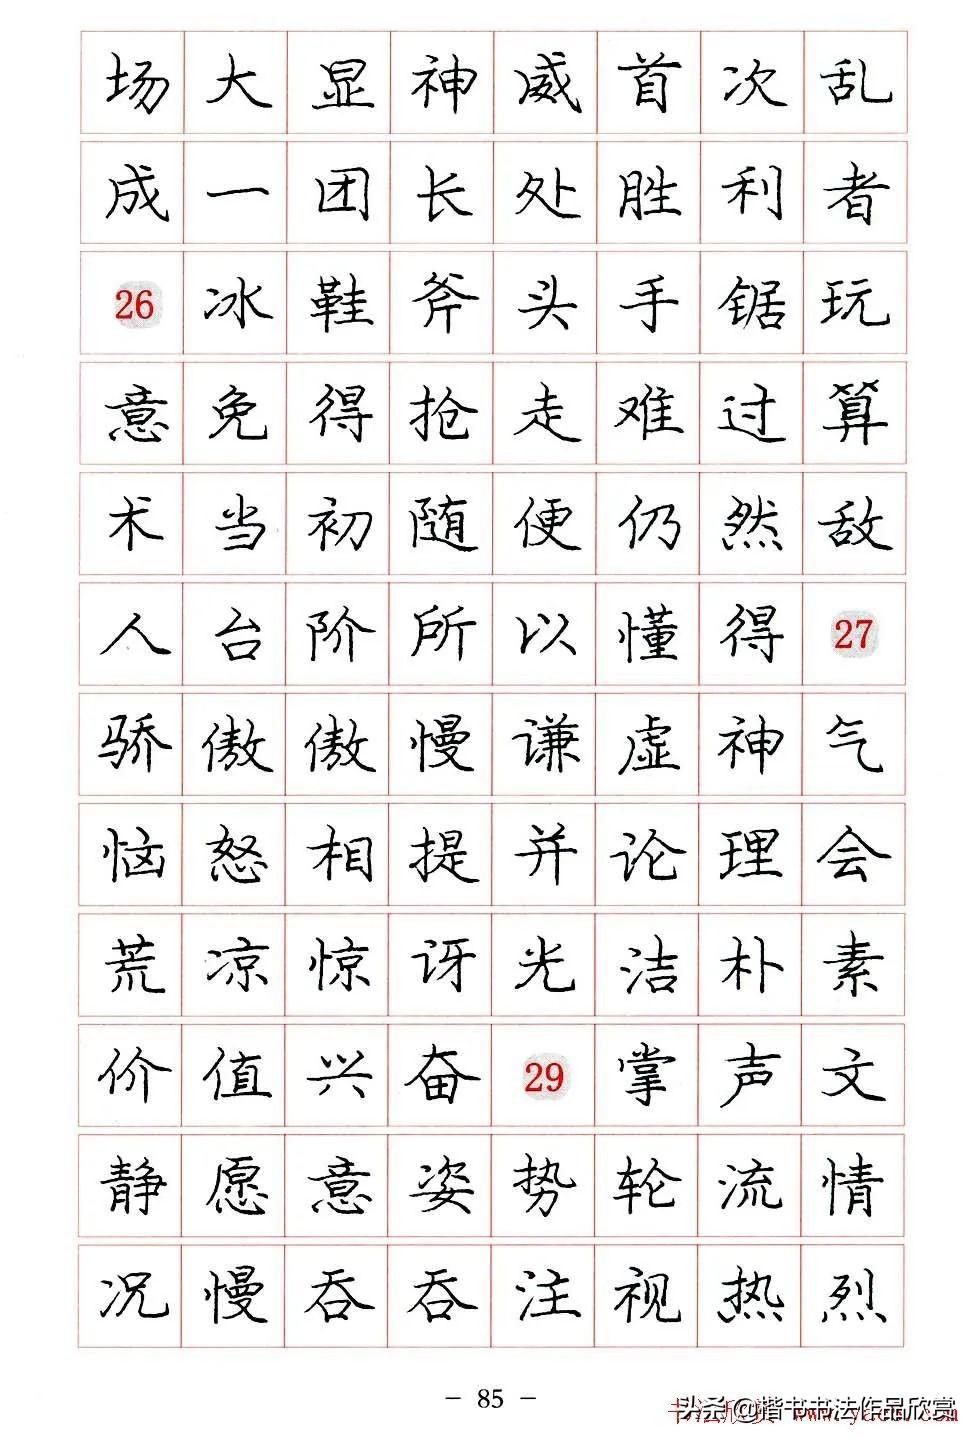 场大显神威首次乱
成一团长处胜利者
26冰鞋斧头手锯玩
意免得抢走难过算
术当初随便仍然敌
人台阶所以懂得27
骄傲傲慢谦虚神气
恼怒相提并论理会
荒凉惊讶光洁朴素
价值兴奋29掌声文
静愿意姿势轮流情
况慢吞吞注视热烈
- 85 -
头条@楷书书法作品欣赏